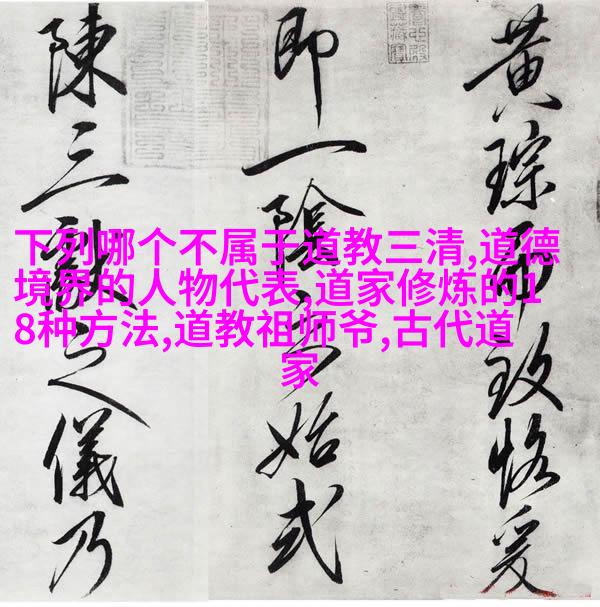 下列哪个不属于道教三清,道德
境界的人物代表,道家修炼的1
8种方法,道教祖师爷,古代道
家
黄琮致恪爰
即一陰始式
陳三獻之儀乃